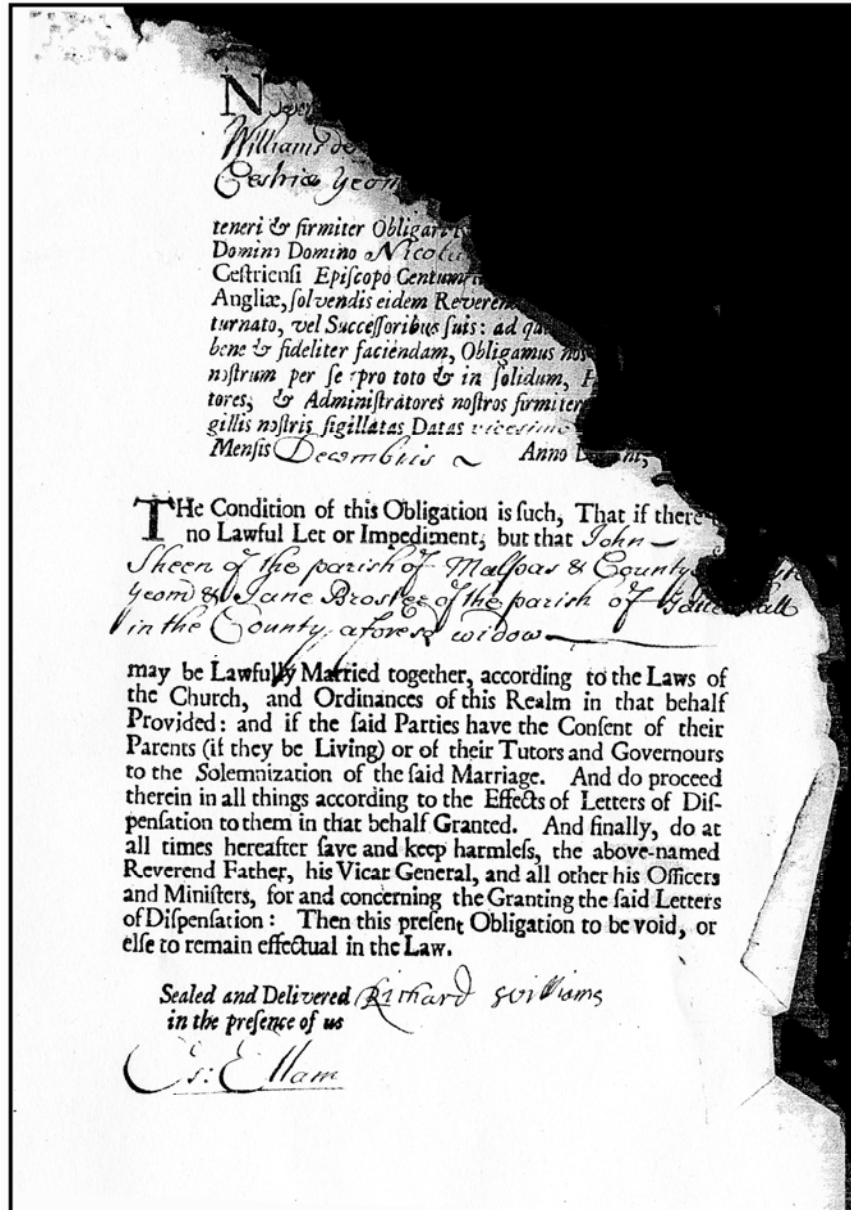 N
Williams de
Cestriæ Yeom
teneri & firmiter Obligari
Domino Domino Nicola
Cestriensi Episcopo Centum
Angliæ, solvendis eidem Reveren
turnato, vel Successoribus suis: ad qu
bene & fideliter faciendam, Obligamus nos
nostrum per se pro toto & in solidum, H
tores, & Administratores nostros firmiter
gillis nostris sigillatas Datas vicesimo
Mensis Decembris Anno
THe Condition of this Obligation is such, That if there
no Lawful Let or Impediment, but that John
Sheen of the parish of Malpas & County
yeom & Jane Broster of the parish of Tattenhall
in the County aforesd widow
may be Lawfully Married together, according to the Laws of
the Church, and Ordinances of this Realm in that behalf
Provided: and if the said Parties have the Consent of their
Parents (if they be Living) or of their Tutors and Governours
to the Solemnization of the said Marriage. And do proceed
therein in all things according to the Effects of Letters of Dis-
pensation to them in that behalf Granted. And finally, do at
all times hereafter save and keep harmless, the above-named
Reverend Father, his Vicar General, and all other his Officers
and Ministers, for and concerning the Granting the said Letters
of Dispensation: Then this present Obligation to be void, or
else to remain effectual in the Law.
Sealed and Delivered Richard Williams
in the presence of us
Ellam